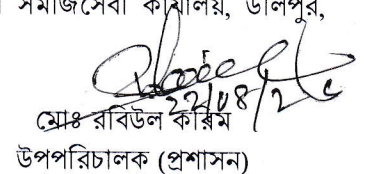 সমাজসেবা কার্যালয়, ডালিপুর,
22/08/2৫
মোঃ রবিউল করিম
উপপরিচালক (প্রশাসন)